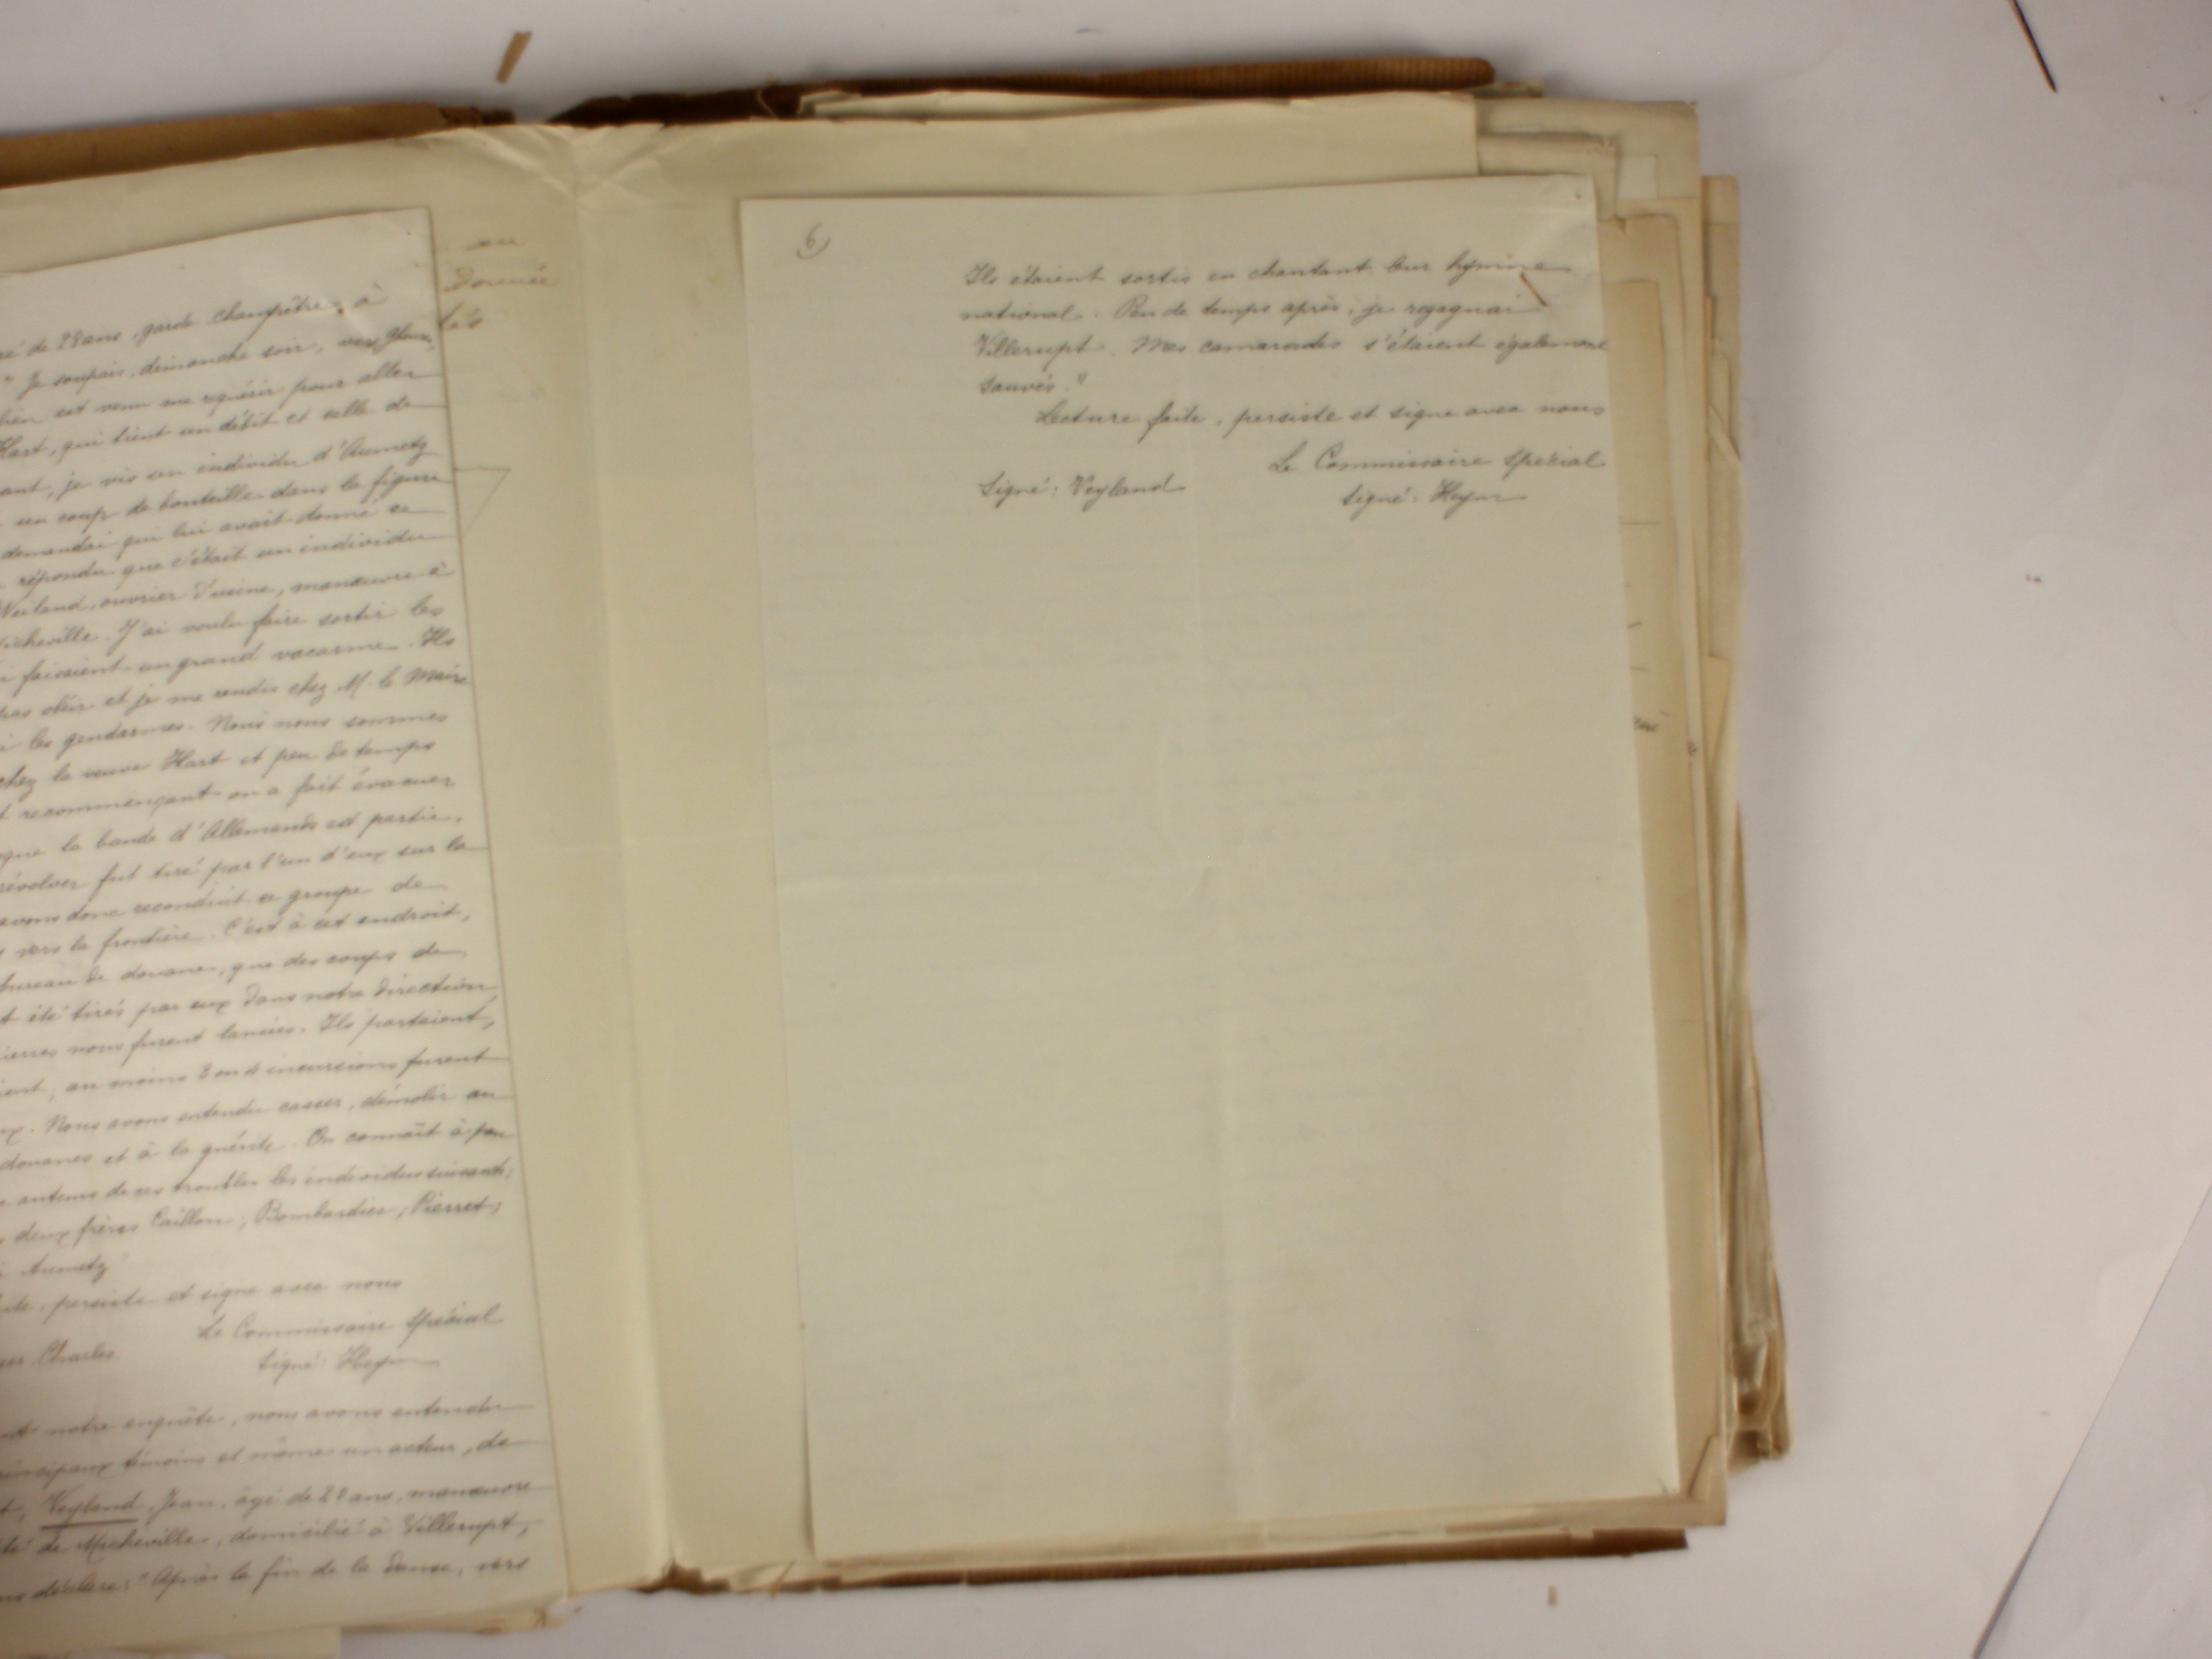 ré de 28 ans, garde champêtre, à
" Je soupais, dimanche soir, vers
bien est venu me requérir pour aller
Hart, qui tient un débit et salle de
ant, je vis un individu d'Aumetz
un coup de bouteille dans la figure
demandai qui lui avait donné ce
répondu que c'était un individu
Weiland, ouvrier d'usine, manœuvre à
icheville. J'ai voulu faire sortir les
i faisaient un grand vacarme. Ils
pas obéir et je me rendis chez M. le Maire
i les gendarmes. Nous nous sommes
chez la veuve Hart et peu de temps
t recommençant on a fait évacuer
que la bande d'Allemands est partie,
révolver fut tiré par l'un d'eux sur la
avons donc reconduit ce groupe de
s vers la frontière. C'est à cet endroit,
bureau de douane, que des coups de
t été tirés par eux dans notre direction
ierres nous furent lancées. Ils partaient,
ient, au moins 3 ou 4 incursions furent
ux. Nous avons entendu casser, démolir au
douanes et à la guérite. On connaît à peu
auteurs de ces troubles les individus suivants:
s deux frères Caillon; Bombardier; Pierret;
à Aumetz"
ite, persiste et signe avec nous
Le Commissaire spécial
ser Charles.
Signé: Heym
nt notre enquête, nous avons entendu
rincipaux témoins et même un acteur, de
t, Veyland, Jean, âgé de 28 ans, manœuvre
té de Micheville, domicilié à Villerupt,
us déclare: "Après la fin de la danse, vers
au
Donnée
tés
6)
Ils étaient sortis en chantant leur hymne
national. Peu de temps après, je regagnai
Villerupt. Mes camarades s'étaient également
sauvés."
Lecture faite, persiste et signe avec nous
Le Commissaire spécial
Signé: Veyland
Signé: Heym